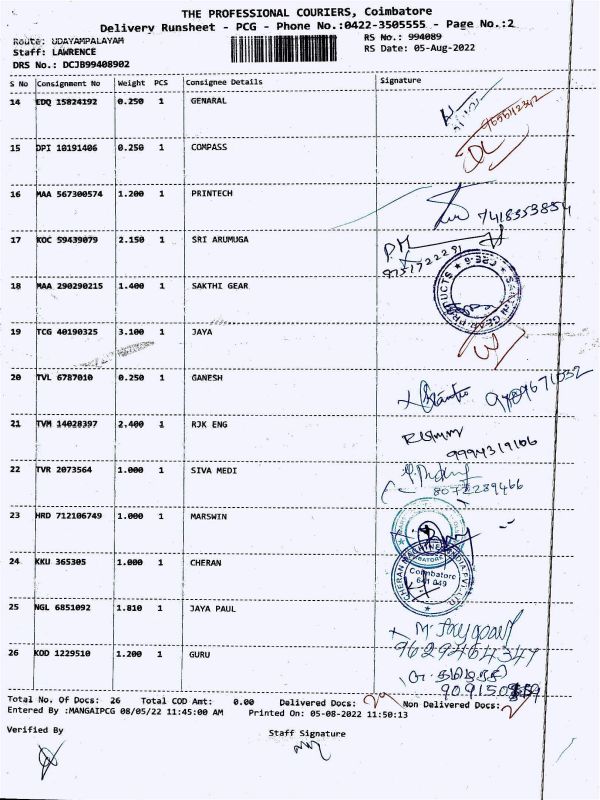 THE PROFESSIONAL COURIERS, Coimbatore
Delivery Runsheet - PCG - Phone No.:0422-3505555 - Page No.:2
Route: UDAYAMPALAYAM
RS No.: 994089
Staff: LAWRENCE
RS Date: 05-Aug-2022
DRS No.: DCJB99408902
S No Consignment No Weight PCS Consignee Details Signature
14 EDQ 15824192 0.250 1 GENARAL
15 DPI 10191406 0.250 1 COMPASS
16 MAA 567300574 1.200 1 PRINTECH
7418353854
17 KOC 59439079 2.150 1 SRI ARUMUGA
P.M
18 MAA 290290215 1.400 1 SAKTHI GEAR
19 TCG 40190325 3.100 1 JAYA
20 TVL 6787010 0.250 1 GANESH
21 TVM 14028397 2.400 1 RJK ENG
9994319106
22 TVR 2073564 1.000 1 SIVA MEDI
8072289466
23 HRD 712106749 1.000 1 MARSWIN
24 KKU 365305 1.000 1 CHERAN
Coimbatore
641 049
25 NGL 6851092 1.810 1 JAYA PAUL
9629464347
26 KOD 1229510 1.200 1 GURU
Total No. Of Docs: 26 Total COD Amt: 0.00 Delivered Docs: Non Delivered Docs:
Entered By :MANGAIPCG 08/05/22 11:45:00 AM Printed On: 05-08-2022 11:50:13
Verified By
Staff Signature